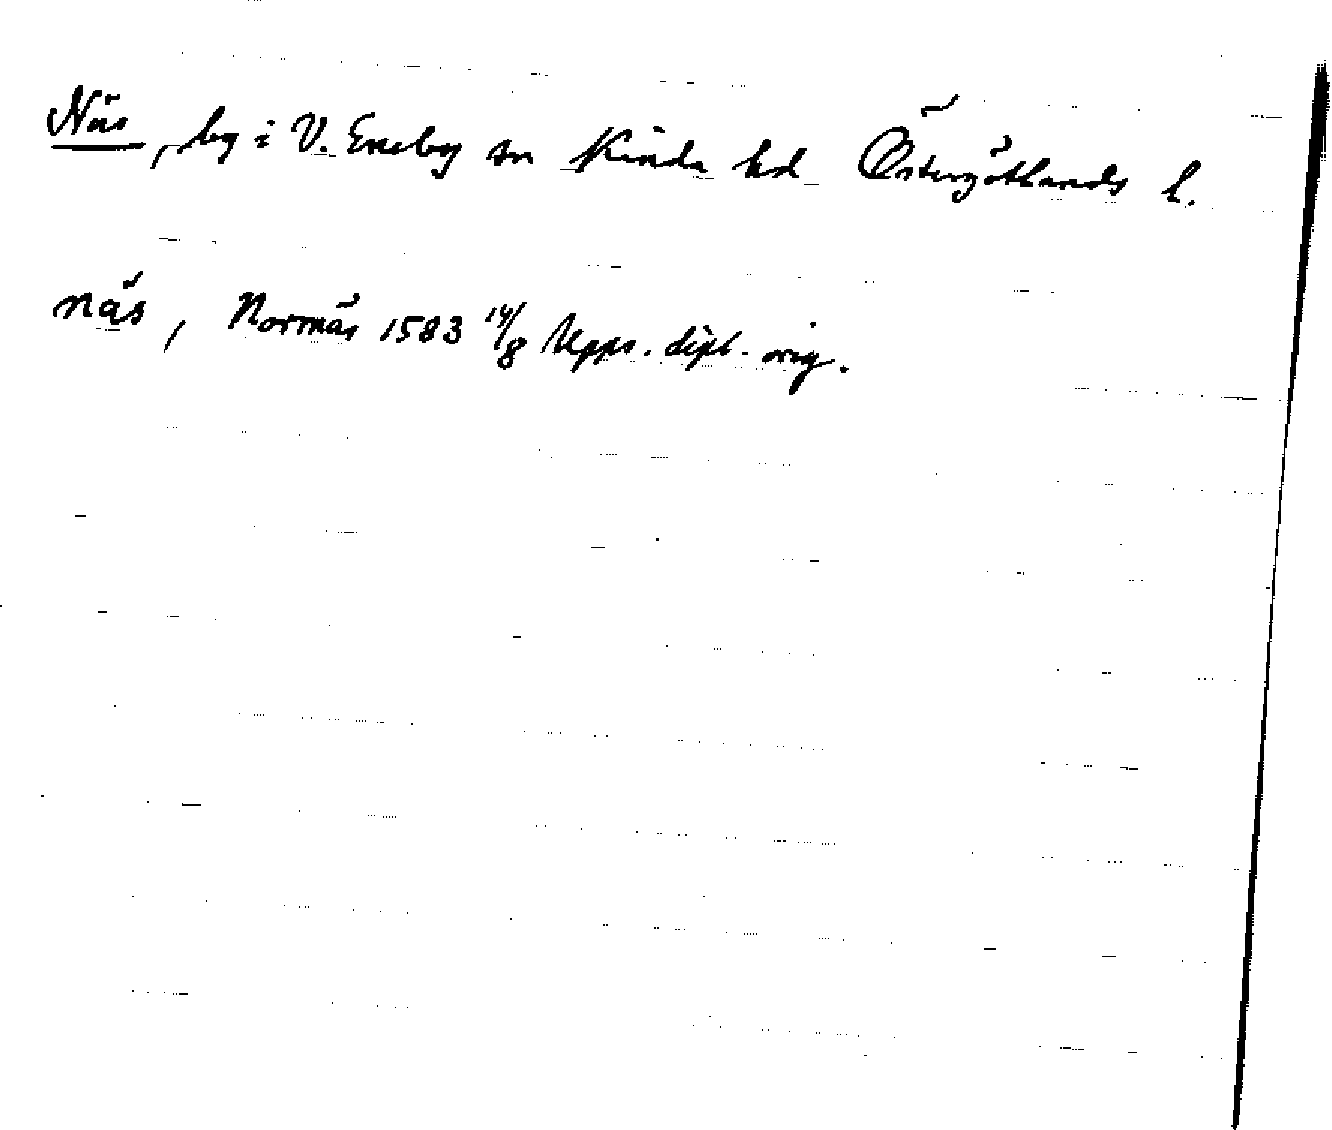 Näs, by i V. Eneby sn Kinda hd Östergötlands l.
näs, Nornäs 1583 14/8 Upps. dipl. orig.